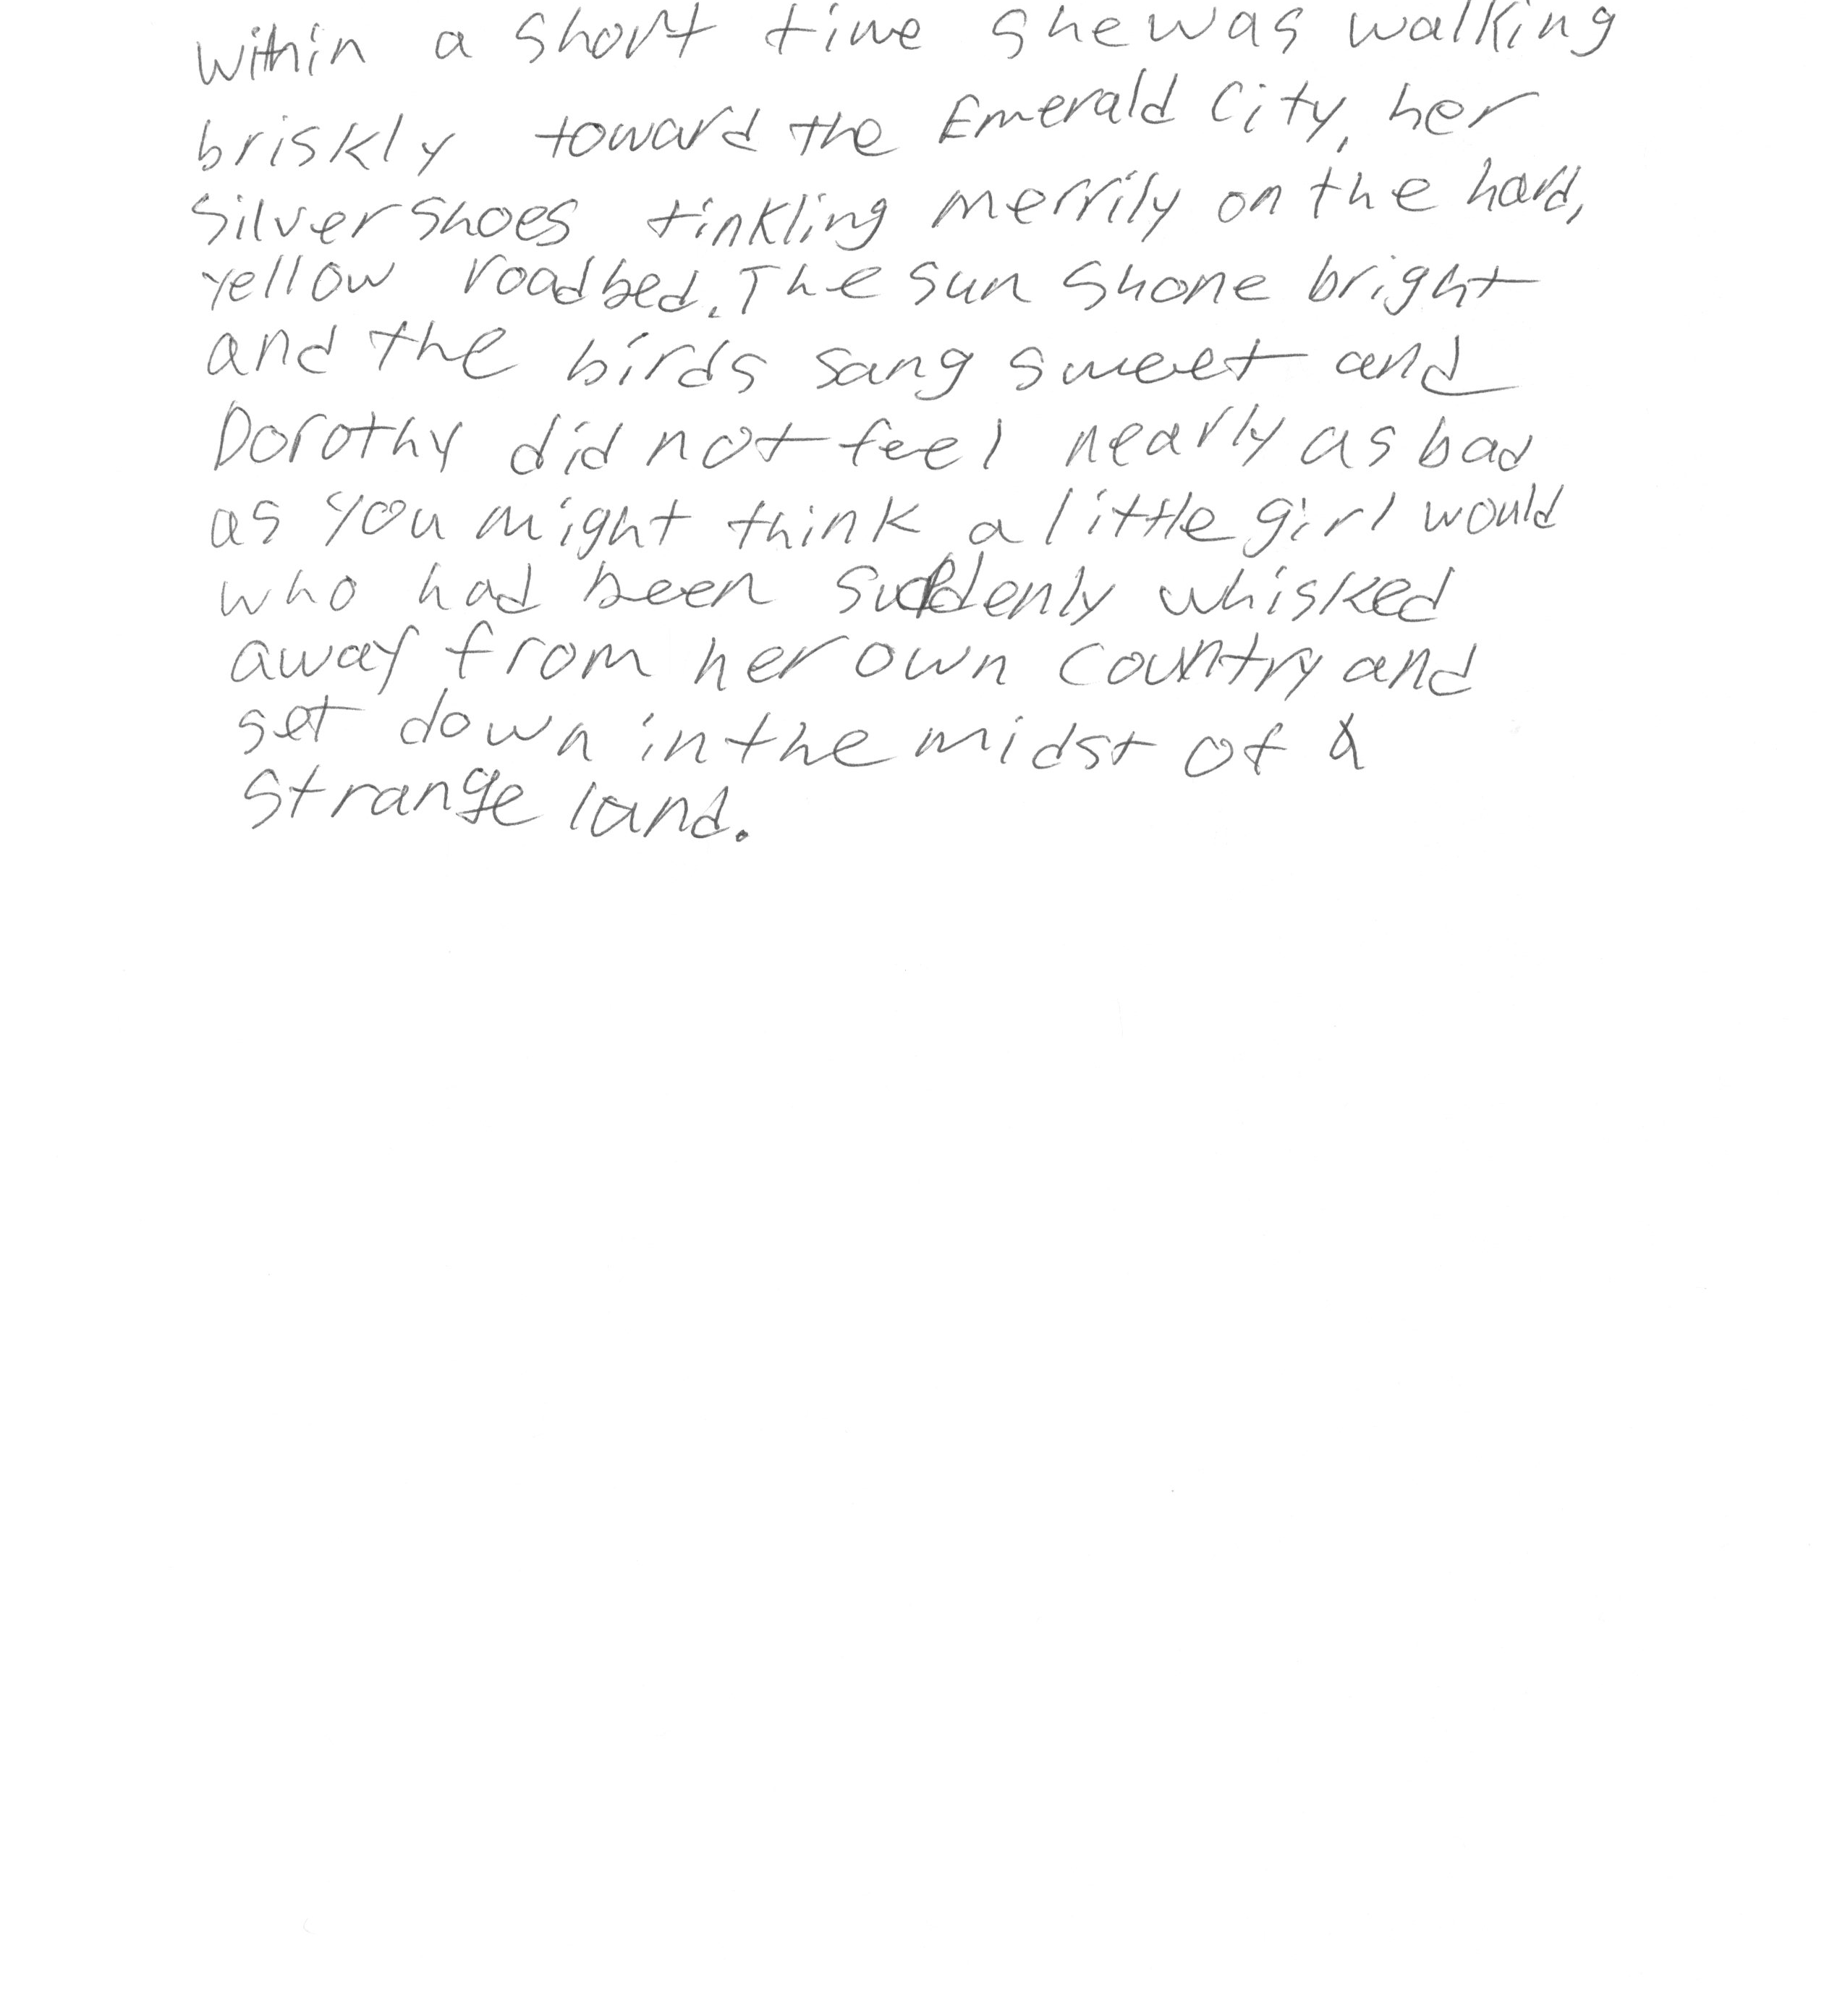 within a short time she was walking
briskly toward the Emerald City, her
silver shoes tinkling merrily on the hard,
yellow roadbed. The sun shone bright
and the birds sang sweet and
Dorothy did not feel nearly as bad
as you might think a little girl would
who had been suddenly whisked
away from her own country and
set down in the midst of a
strange land.